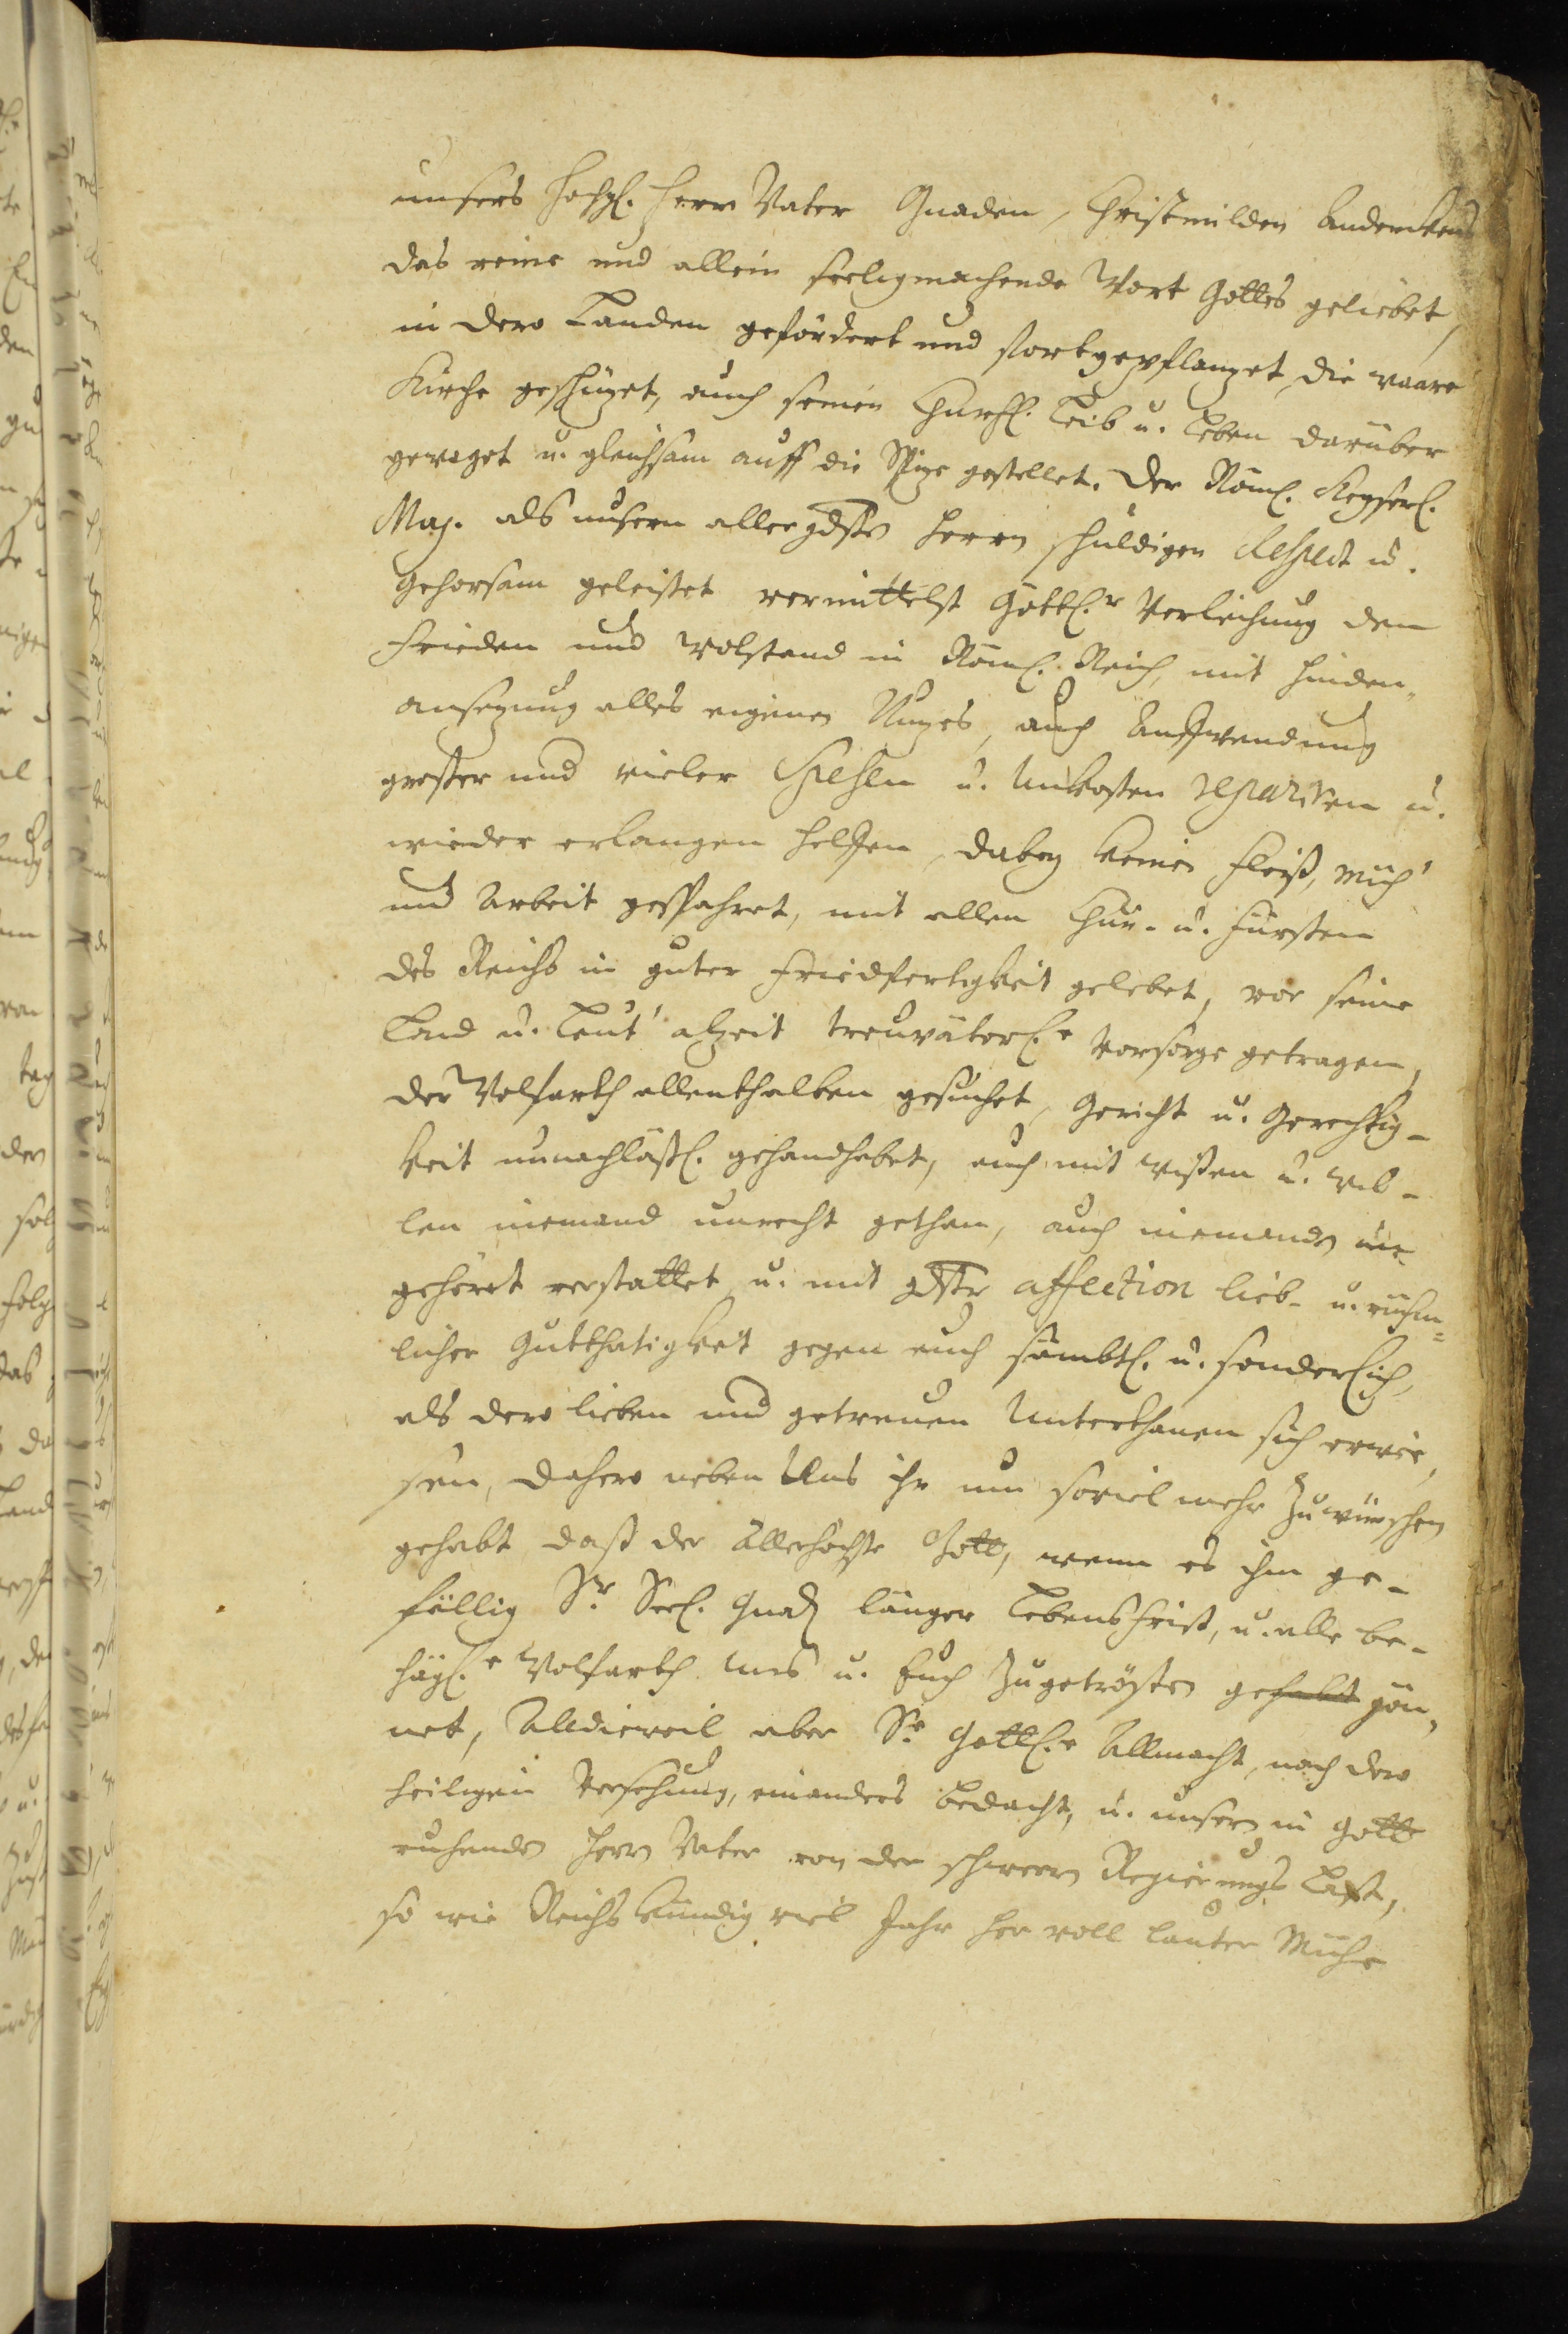 unsers hochgl. Herrn Vater Gnaden, Christmilden Andenckens
das reine und allein seeligmachende Wort Gottes geliebet,
in dero Landen gefördert und fortgepflanzet, die waare
Kirche geschüzet, auch seinen Churfl. Leib u. Leben darüber
gewaget u. gleichsam auff die Spize gestellet. Der Röml. Keyserl.
Maj. als unsern allergdsten Herrn schuldigen Respect u.
Gehorsam geleistet vermittelst Göttl.r Verleihung den
Frieden und Wolstand in Röml. Reich, mit hinden-
ansezung alles eigenen Nuzes, auch Anffwendung
grosser und vieler Spesen u. Unkosten repariren u.
wieder erlangen helffen, dabey keinen Fleiß, Müh'
und Arbeit gespahret, mit allen Chur- u. Fürsten
des Reichs in guter Friedfertigkeit gelebet, vor seine
Land u. Leut' alzeit treuväterl.e Vorsorge getragen,
der Wolfarth allenthalben gesuchet, Gericht u. Gerechtig-
keit unnachläßl. gehandhabet, auch mit wißen u. wil-
len niemand unrecht gethan, auch niemands un-
gehört verstattet u. mit gdster affection lieb- u. rühm-
licher Gutthätigkeit gegen euch sämbtl. u. sonderlich,
als dero lieben und getreuen Unterthanen sich erwie-
sen, dahero neben Uns ihr um soviel mehr zu wünschen
gehabt daß der Allerhöchste Gott, wenn es ihm ge-
fällig Sr. Seel. Gnad. länger Lebensfrist, u. alle be-
hägl.e Wolfarth uns u. Euch zugetrösten gehabt gön-
net, Alldieweil aber Se. Göttl.e Allmacht, nach dero
heiligen Versehung, einanders bedacht, u. unsern in Gott
ruhenden Herrn Vater von der schweren Regierungs Last,
so wie Reichs kündig viel Jahr her voll lauter Mühe